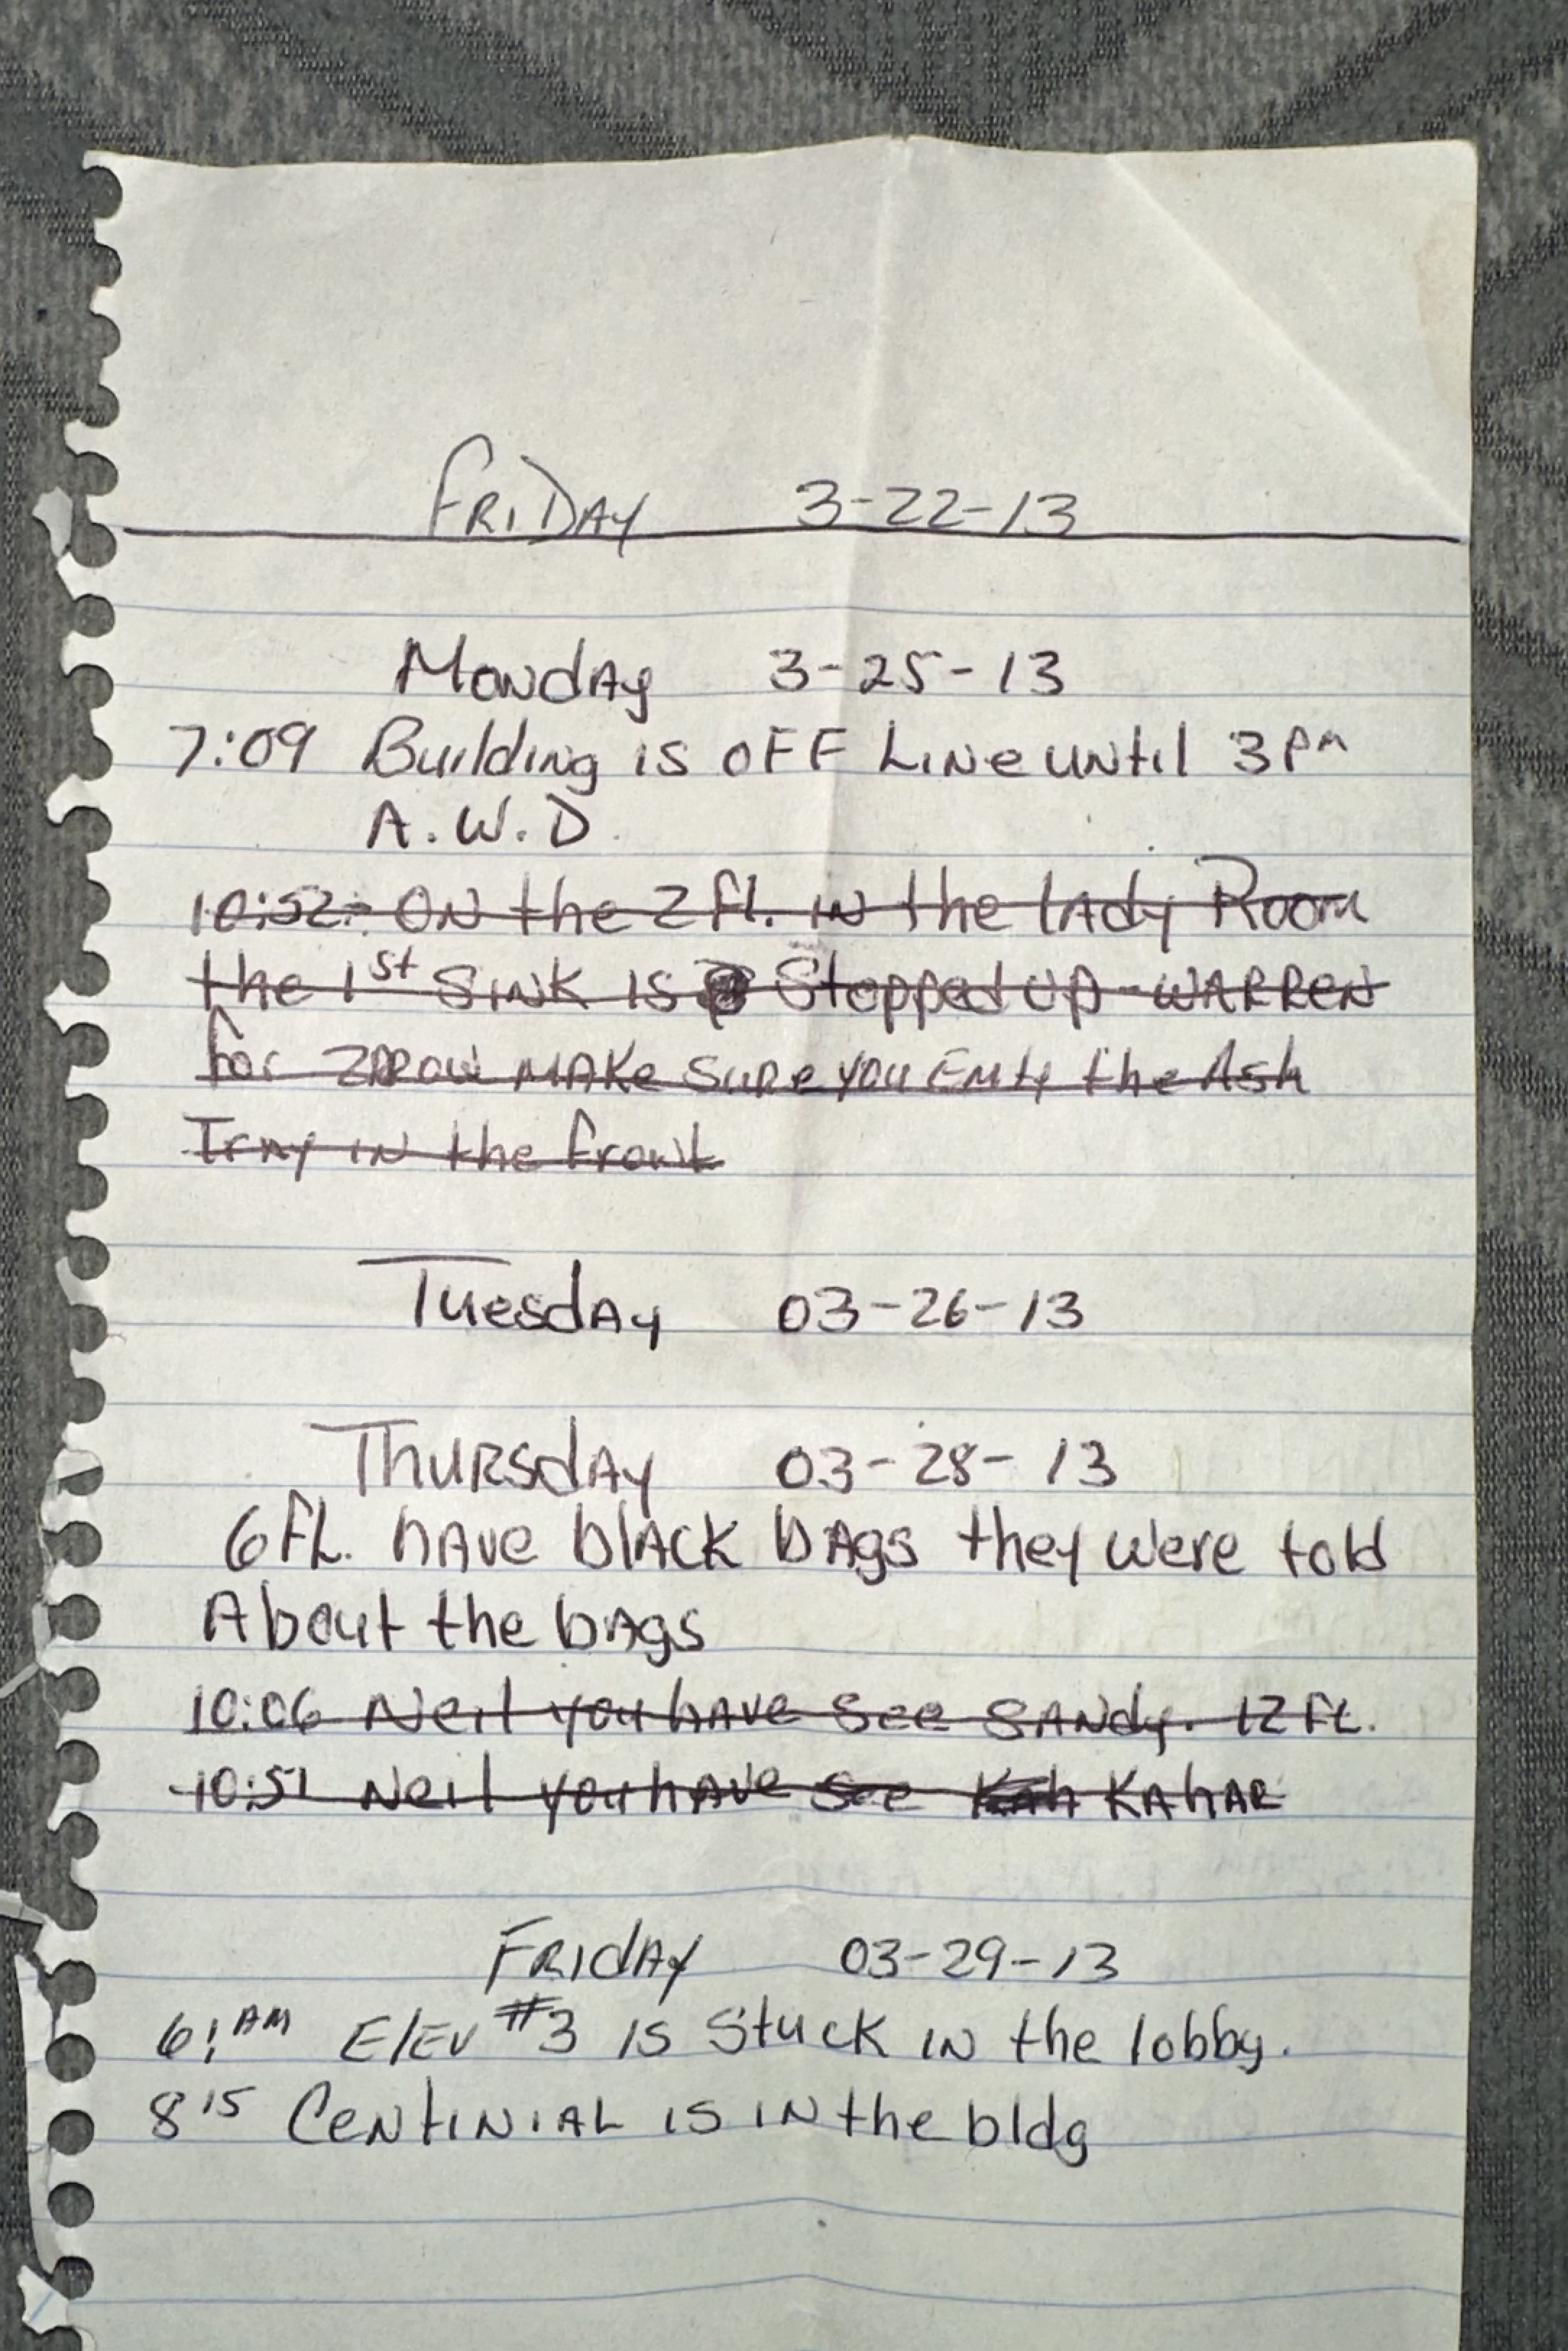 FRIDAY 3-22-13
Monday 3-25-13
7:09 Building is OFF Line until 3 PM
A.W.D.
10:52: ON the 2 fl. IN the lady Room
the 1st SINK IS Stopped up - WARREN
for MAKE SURE you Emty the Ash
Tray IN the front
Tuesday 03-26-13
Thursday 03-28-13
6 FL. have black bags they were told
About the bags
10:06 Neil you have see SANdy. 12 FL.
10:51 Neil you have see Kah KAhAR
FRIdAY 03-29-13
6: AM ElEv #3 is Stuck IN the lobby.
8 15 CENtINIAL IS IN the bldg